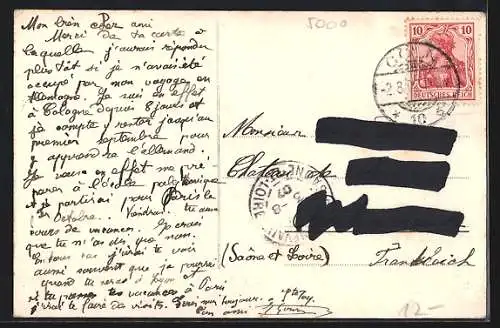 Mon bien cher ami
Merci de ta carte à
laquelle j'aurais répondu
plus tôt si je n'avais été
occupé par mon voyage en
Allemagne. Je suis en effet
à Cologne depuis 8 jours et
je compte y rester jusqu'au
premier septembre pour
y apprendre l'allemand.
Je vais en effet me pré-
parer à l'école polytechnique
et je partirai pour Paris le
1er Octobre. Viendras-tu aux
cours de vacances. Je crois
que tu m'as dit que non.
En tous cas j'irai te voir
aussi souvent que je pourrai
quand tu seras à Lyon et
si tu passes tes vacances à Paris
j'irai te faire des visites. toujours
ton ami
5000
10 10
DEUTSCHES REICH
CÖLN
-2.8
10
Monsieur
SAONE
LOIRE
(Saône et Loire)
Frankreich
12-